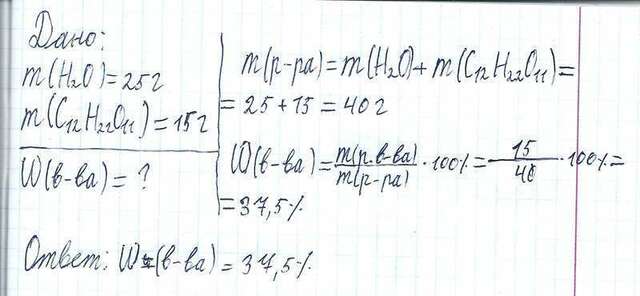 Дано:
m(H₂O)=25г
m(C₁₂H₂₂O₁₁)=15г
W(в-ва)=?
m(р-ра)=m(H₂O)+m(C₁₂H₂₂O₁₁)=
=25+15=40г
W(в-ва)=m(р.в-ва)/m(р-ра)·100%=15/40·100%=
=37,5%
Ответ: W(в-ва)=37,5%